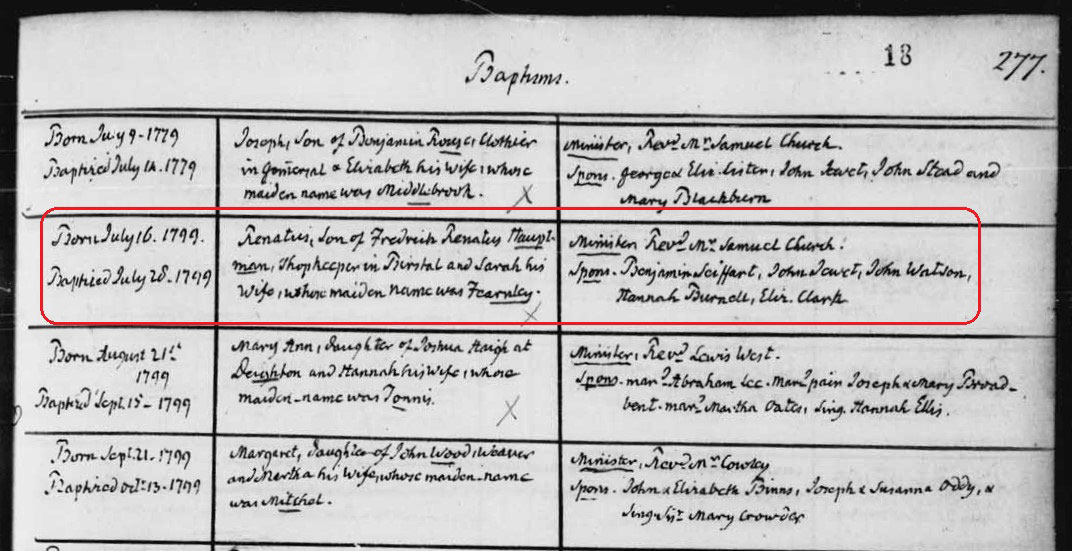 18
277.
Baptisms.
Born July 9 - 1779
Baptized July 14 - 1779
Joseph, Son of Benjamin Clothier
in Gomersal & Elizabeth his wife, whose
maiden name was Middlebrook.
Minister, Revd. Mr. Samuel Church.
Spons. George & Eliz. Lister, John Jewet, John Stead and
Mary Blackburn
Born July 16. 1799.
Baptized July 28. 1799
Renatus, Son of Fredrick Renatus Haupt-
man, Shopkeeper in Birstal and Sarah his
Wife, whose maiden name was Fearnley.
Minister Revd. Mr. Samuel Church.
Spons. Benjamin Seiffart, John Jewet, John Watson,
Hannah Burnell, Eliz. Clark
Born August 21st
1799
Baptized Sept. 15 - 1799
Mary Ann, daughter of Joshua Haigh at
Deighton and Hannah his wife, whose
maiden-name was
Minister, Revd. Lewis West.
Spons. mard. Abraham Lee. Mard. pain Joseph & Mary Broad-
bent. mard. Martha Oates, Sing. Hannah Ellis.
Born Sept. 21 - 1799
Baptized Oct. 13 - 1799
Margaret, Daughter of John Wood, Weaver
and Martha his Wife, whose maiden-name
was Mitchel.
Minister, Revd. Mr. Cowley
Spons. John & Elizabeth Binns, Joseph & Susanna Oddy, &
Sing. Sisr. Mary Crowder